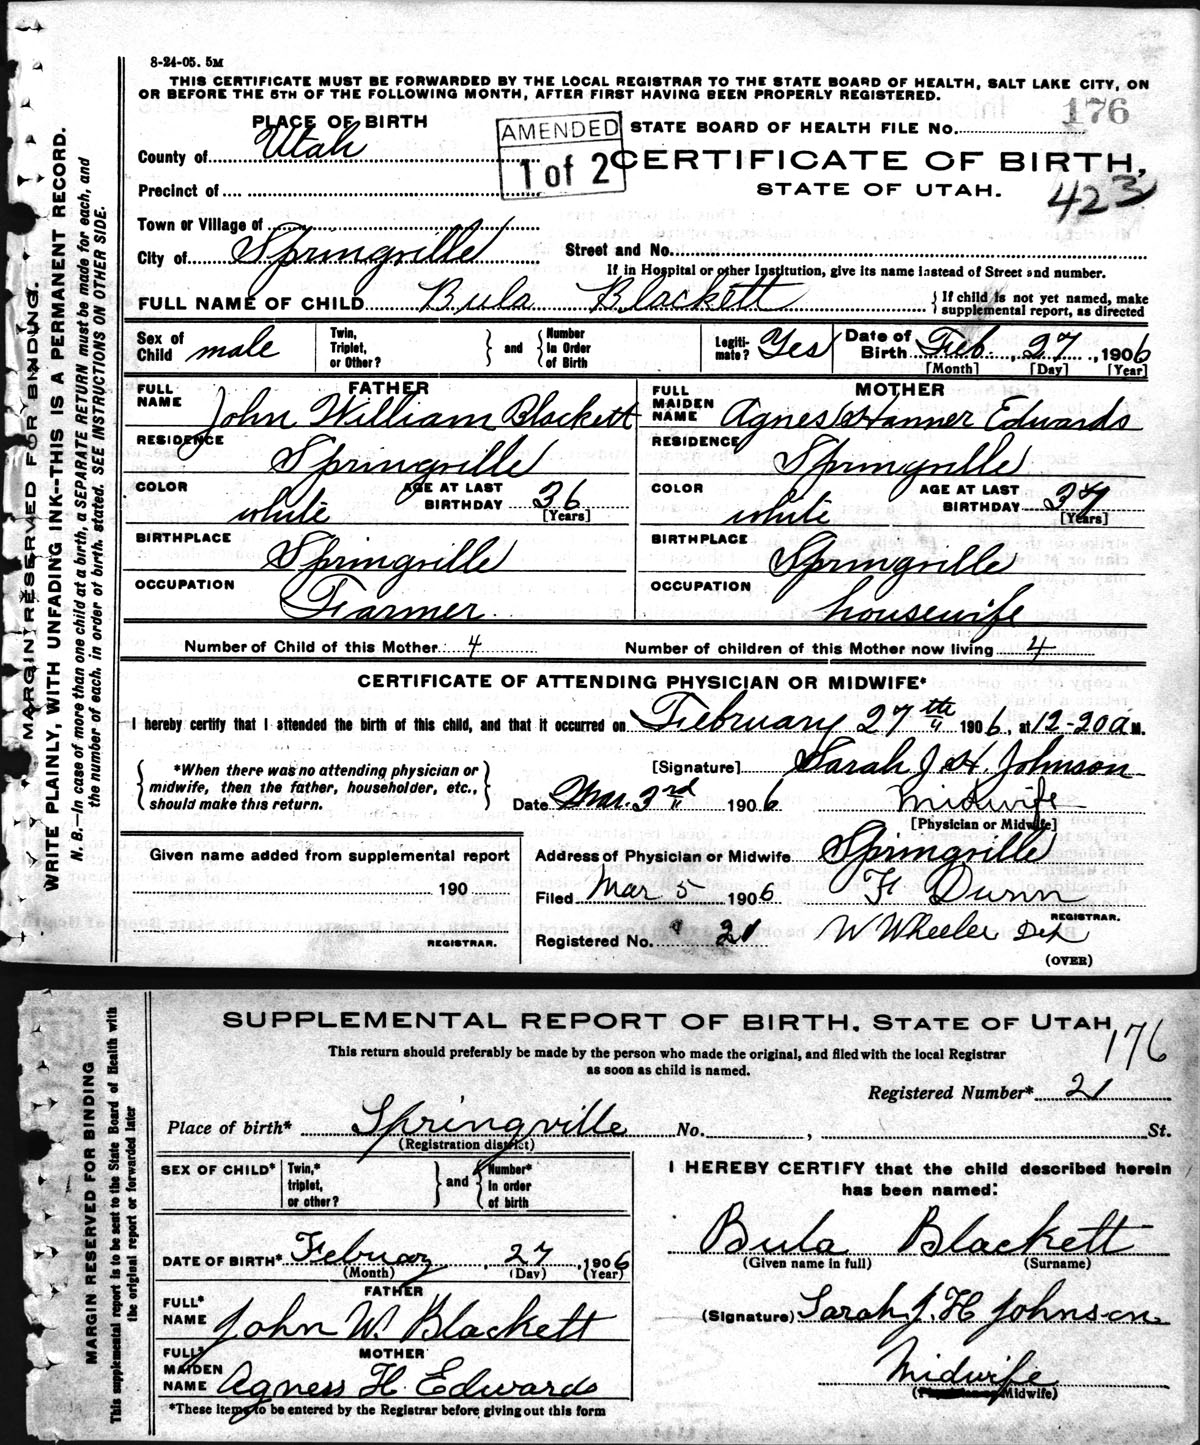 8-24-05. 5M
THIS CERTIFICATE MUST BE FORWARDED BY THE LOCAL REGISTRAR TO THE STATE BOARD OF HEALTH, SALT LAKE CITY, ON
OR BEFORE THE 5TH OF THE FOLLOWING MONTH, AFTER FIRST HAVING BEEN PROPERLY REGISTERED.
MARGIN RESERVED FOR BINDING.
WRITE PLAINLY, WITH UNFADING INK--THIS IS A PERMANENT RECORD.
N. B.—In case of more than one child at a birth, a SEPARATE RETURN must be made for each, and
the number of each, in order of birth, stated. SEE INSTRUCTIONS ON OTHER SIDE.
PLACE OF BIRTH
AMENDED
1 of 2
STATE BOARD OF HEALTH FILE No. 176
County of Utah
CERTIFICATE OF BIRTH,
STATE OF UTAH.
423
Precinct of
Town or Village of
City of Springville
Street and No.
If in Hospital or other Institution, give its name instead of Street and number.
FULL NAME OF CHILD Bula Blackett
{ If child is not yet named, make
supplemental report, as directed
Sex of Child male
Twin, Triplet, or Other? } and { Number In Order of Birth
Legiti-mate? Yes
Date of Birth Feb. , 27 , 1906
[Month] [Day] [Year]
FATHER
FULL NAME John William Blackett
MOTHER
FULL MAIDEN NAME Agnes Hanner Edwards
RESIDENCE Springville
RESIDENCE Springville
COLOR white
AGE AT LAST BIRTHDAY 36 [Years]
COLOR white
AGE AT LAST BIRTHDAY 34 [Years]
BIRTHPLACE Springville
BIRTHPLACE Springville
OCCUPATION Farmer.
OCCUPATION housewife
Number of Child of this Mother 4
Number of children of this Mother now living 4
CERTIFICATE OF ATTENDING PHYSICIAN OR MIDWIFE*
I hereby certify that I attended the birth of this child, and that it occurred on February 27th 1906, at 12-20 a M.
{ *When there was no attending physician or
midwife, then the father, householder, etc.,
should make this return. }
[Signature] Sarah J. H. Johnson
Date Mar. 3rd 1906
Midwife
[Physician or Midwife]
Given name added from supplemental report
190
REGISTRAR.
Address of Physician or Midwife Springville
Filed Mar 5 1906
F Dunn
REGISTRAR.
Registered No. 21
W Wheeler Dep
(OVER)
SUPPLEMENTAL REPORT OF BIRTH. STATE OF UTAH
176
This return should preferably be made by the person who made the original, and filed with the local Registrar
as soon as child is named.
MARGIN RESERVED FOR BINDING
This supplemental report is to be sent to the State Board of Health with
the original report or forwarded later
Registered Number* 21
Place of birth* Springville No. , St.
(Registration district)
SEX OF CHILD*
Twin,* triplet, or other? } and { Number* In order of birth
DATE OF BIRTH* Februay , 27 , 1906
(Month) (Day) (Year)
FATHER
FULL* NAME John W. Blackett
MOTHER
FULL* MAIDEN NAME Agness H. Edwards
*These items to be entered by the Registrar before giving out this form
I HEREBY CERTIFY that the child described herein
has been named:
Bula Blackett
(Given name in full) (Surname)
(Signature) Sarah J. H Johnson.
Midwife
Midwife)